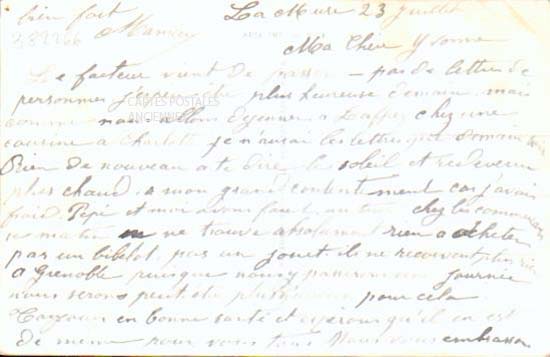 bien fort
Maman
389266
La Mure 23 juillet
Ma Chère Yvonne
Le facteur vient de passer – pas de lettres de
personne, j'espère être plus heureuse demain, mais
comme nous allons déjeuner à Laffrey chez une
cousine à Charlotte je n'aurai les lettres que demain
CARTES POSTALES
ANCIENNES
Rien de nouveau à te dire, le soleil est redevenu
plus chaud, à mon grand contentement car j'avais
froid. Pépé et moi avons fait chez les commerçants
ce matin on ne trouve absolument rien à acheter
pas un bibelot, pas un jouet. ils ne reçoivent plus rien
à Grenoble puisque nous y passerons une journée
nous serons peut-être plus heureux pour cela
Toujours en bonne santé et espérons qu'il en est
de même pour vous tous. Nous vous embrassons